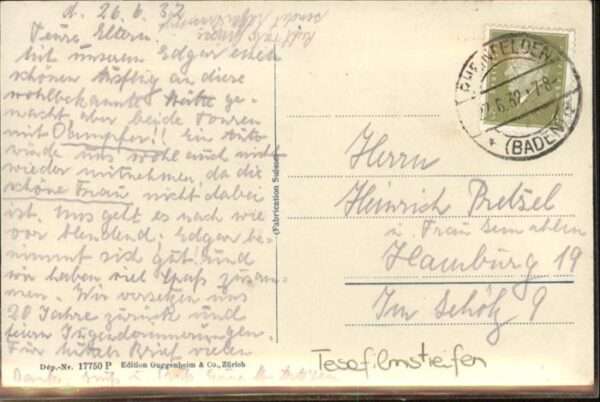 d. 26.6.32
Teure Eltern!
Mit unserem Edgar einen
schönen Ausflug an diese
wohlbekannte Stätte ge-
macht, aber beide Touren
mit Dampfer!! Ein Auto
würde uns wohl auch nicht
wieder mitnehmen, da die
schöne Frau nicht dabei
ist. Uns geht es nach wie
vor blendend; Edgar be-
nimmt sich gut und
wir haben viel Spaß zusam-
men. Wir versetzen uns
20 Jahre zurück und
feiern Jugenderinnerungen.
Für Brief vielen
Dank
Dép.-Nr. 17750 P Edition Guggenheim & Co., Zürich
(Fabrication Suisse)
RHEINFELDEN
26.6.32 * 7-8
(BADEN)
Herrn
Heinrich Pretzel
u. Frau Gemahlin
Hamburg 19
Im Gehölz 9
Tesafilmstreifen